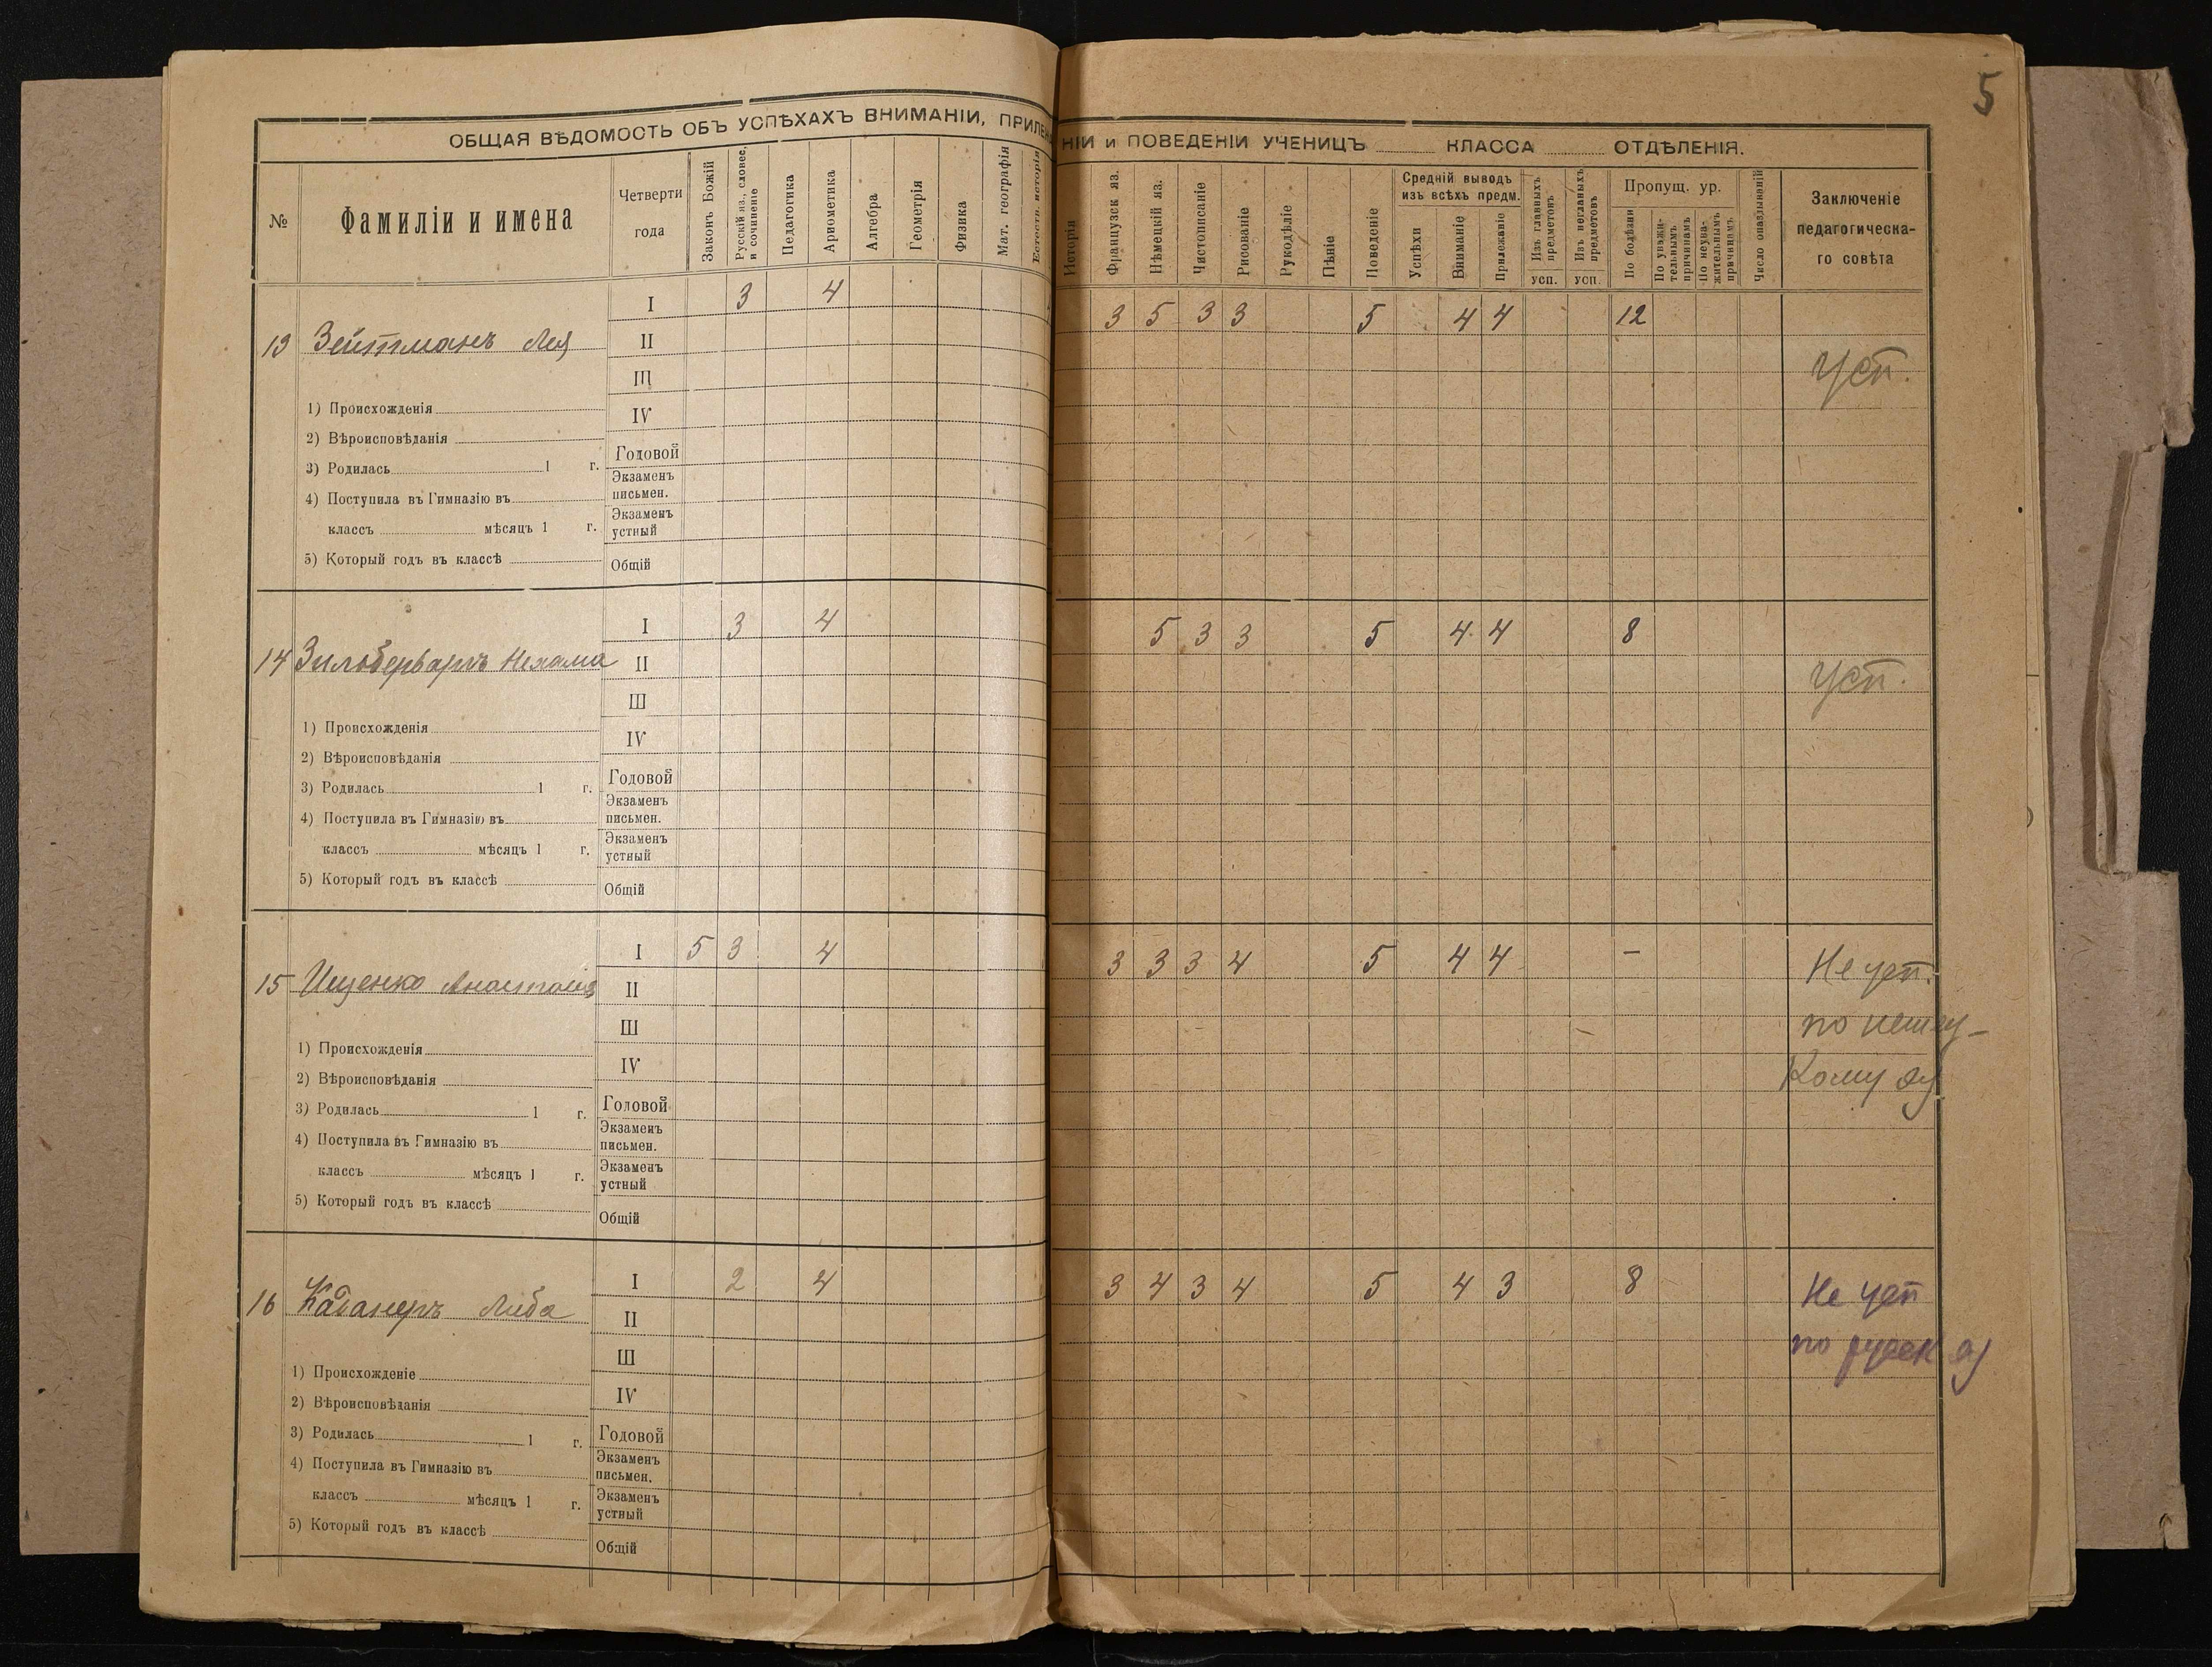 5
ОБЩАЯ ВѢДОМОСТЬ ОБЪ УСПѢХАХЪ ВНИМАНІИ, ПРИЛЕЖ НІИ и ПОВЕДЕНІИ УЧЕНИЦЪ КЛАССА ОТДѢЛЕНІЯ.
№ Фамиліи и имена Четверти года Законъ Божій Русскій яз., словес. и сочиненіе Педагогика Ариѳметика Алгебра Геометрія Физика Мат. географія Естеств. исторія Исторія Французск яз. Нѣмецкій яз. Чистописаніе Рисованіе Рукодѣліе Пѣніе Поведеніе Средній выводъ изъ всѣхъ предм. Успѣхи Вниманіе Прилежаніе Изъ главныхъ предметовъ усп. Изъ неглавныхъ предметовъ усп. Пропущ. ур. По болѣзни По уважительнымъ причинамъ По неуважительнымъ причинамъ Число опаздываній Заключеніе педагогическа-го совѣта
I 3 4 3 5 3 3 5 4 4 12
13 Зейтманъ Лея II Усп.
III
1) Происхожденія IV
2) Вѣроисповѣданія
3) Родилась 1 г. Годовой
4) Поступила въ Гимназію въ Экзаменъ письмен.
классъ мѣсяцъ 1 г. Экзаменъ устный
5) Который годъ въ классѣ Общій
I 3 4 5 3 3 5 4 4 8
14 Нехама II Усп.
III
1) Происхожденія IV
2) Вѣроисповѣданія
3) Родилась 1 г. Годовой
4) Поступила въ Гимназію въ Экзаменъ письмен.
классъ мѣсяцъ 1 г. Экзаменъ устный
5) Который годъ въ классѣ Общій
I 5 3 4 3 3 3 4 5 4 4 – Не усп.
15 Ищенко Анастасія II
III по немец-
1) Происхожденія IV кому яз
2) Вѣроисповѣданія
3) Родилась 1 г. Годовой
4) Поступила въ Гимназію въ Экзаменъ письмен.
классъ мѣсяцъ 1 г. Экзаменъ устный
5) Который годъ въ классѣ Общій
I 2 4 3 4 3 4 5 4 3 8 Не усп
16 Каданеръ Либа II
III по русск яз
1) Происхожденіе IV
2) Вѣроисповѣданія
3) Родилась 1 г. Годовой
4) Поступила въ Гимназію въ Экзаменъ письмен.
классъ мѣсяцъ 1 г. Экзаменъ устный
5) Который годъ въ классѣ Общій